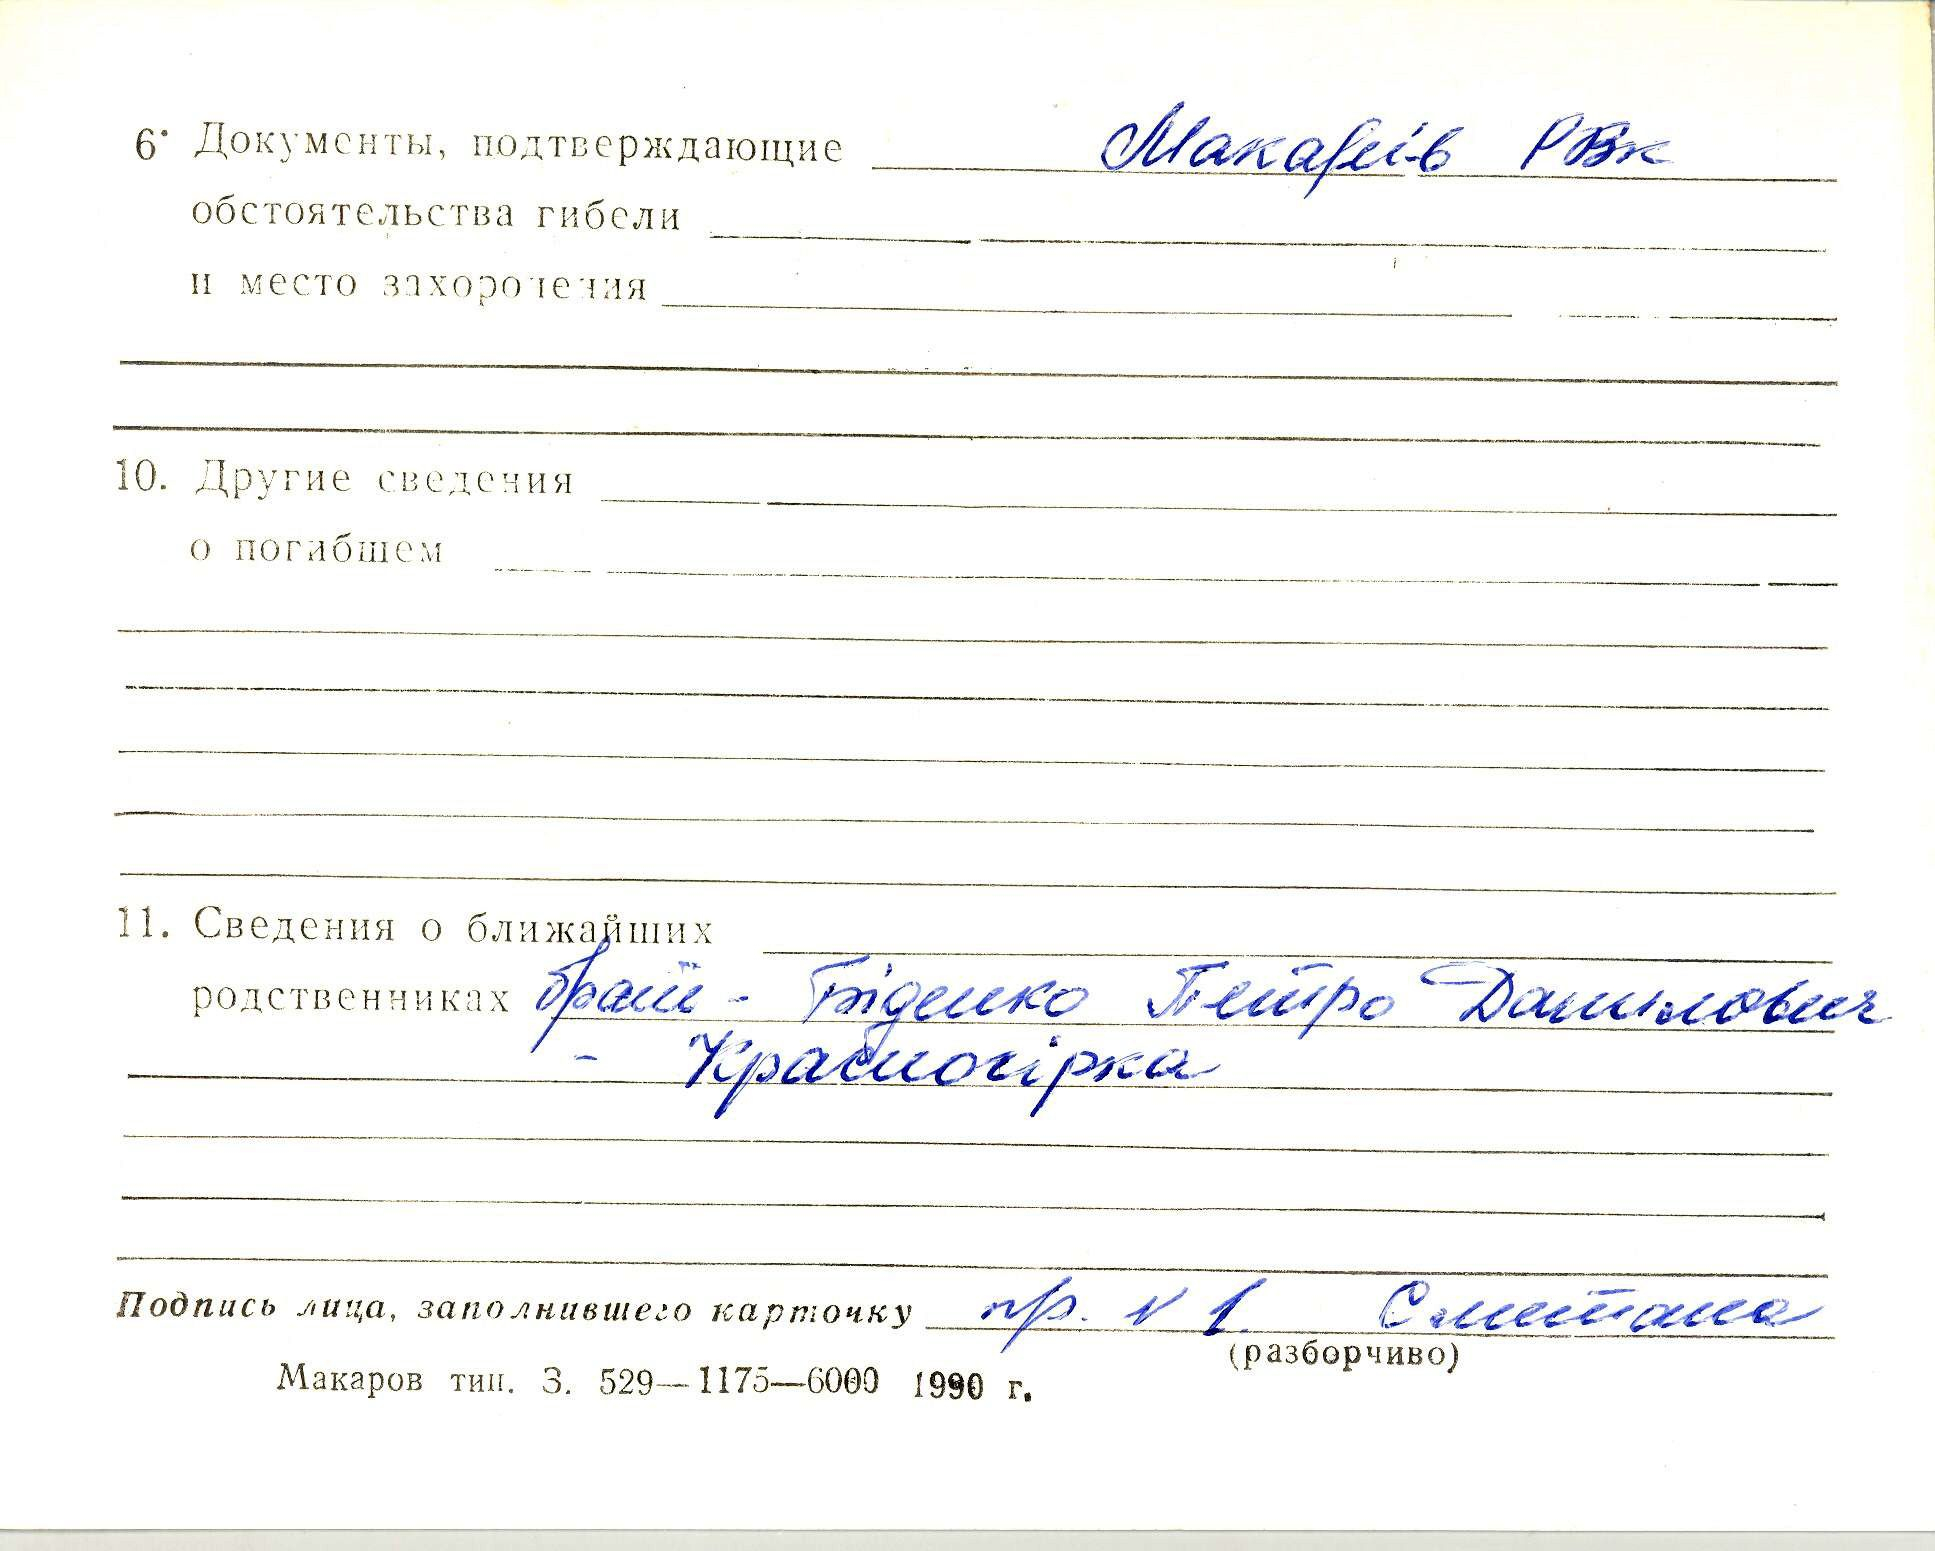 6. Документы, подтверждающие Макарів РВк
обстоятельства гибели
и место захоронения
10. Другие сведения
о погибшем
11. Сведения о ближайших
родственниках брат - Біденко Петро Данилович
- Красногірка
Подпись лица, заполнившего карточку пр. N 1. Сметана
(разборчиво)
Макаров тип. З. 529—1175—6000 1990 г.